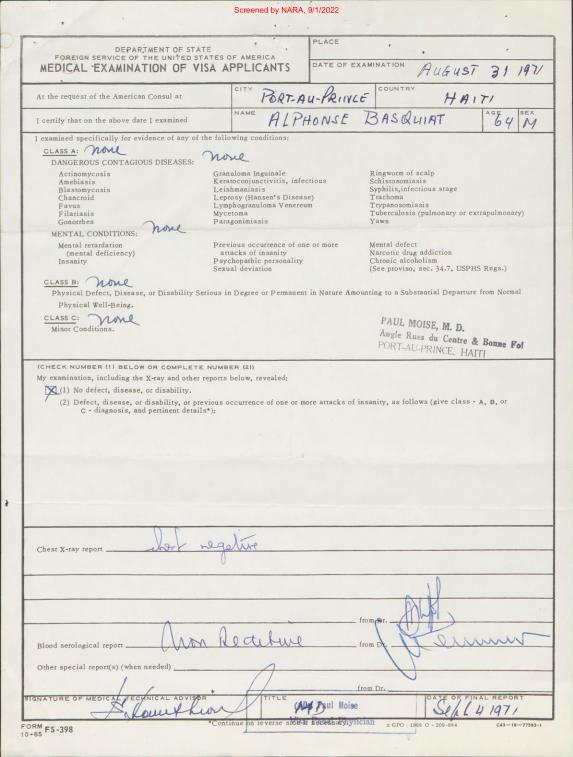 Screened by NARA, 9/1/2022
DEPARTMENT OF STATE
FOREIGN SERVICE OF THE UNITED STATES OF AMERICA
MEDICAL EXAMINATION OF VISA APPLICANTS
PLACE
DATE OF EXAMINATION AUGUST 31 1971
At the request of the American Consul at
CITY PORT-AU-PRINCE
COUNTRY HAITI
I certify that on the above date I examined
NAME ALPHONSE BASQUIAT
AGE 64
SEX M
I examined specifically for evidence of any of the following conditions:
CLASS A: none
DANGEROUS CONTAGIOUS DISEASES: none
Actinomycosis Granuloma Inguinale Ringworm of scalp
Amebiasis Keratoconjunctivitis, infectious Schistosomiasis
Blastomycosis Leishmaniasis Syphilis,infectious stage
Chancroid Leprosy (Hansen's Disease) Trachoma
Favus Lymphogranuloma Venereum Trypanosomiasis
Filariasis Mycetoma Tuberculosis (pulmonary or extrapulmonary)
Gonorrhea Paragonimiasis Yaws
MENTAL CONDITIONS: none
Mental retardation Previous occurrence of one or more Mental defect
(mental deficiency) attacks of insanity Narcotic drug addiction
Insanity Psychopathic personality Chronic alcoholism
Sexual deviation (See proviso, sec. 34.7, USPHS Regs.)
CLASS B: none
Physical Defect, Disease, or Disability Serious in Degree or Permanent in Nature Amounting to a Substantial Departure from Normal
Physical Well-Being.
CLASS C: none
Minor Conditions.
PAUL MOISE, M. D.
Angle Rues du Centre & Bonne Foi
PORT-AU-PRINCE, HAITI
(CHECK NUMBER (1) BELOW OR COMPLETE NUMBER (2))
My examination, including the X-ray and other reports below, revealed:
X (1) No defect, disease, or disability.
(2) Defect, disease, or disability, or previous occurrence of one or more attacks of insanity, as follows (give class - A, B, or
C - diagnosis, and pertinent details*):
Chest X-ray report chest negative
from Dr.
Blood serological report Non Reactive from Dr.
Other special report(s) (when needed)
from Dr.
SIGNATURE OF MEDICAL TECHNICAL ADVISOR
TITLE
Paul Moise
Physician
DATE OF FINAL REPORT
Sept 4 1971
FORM FS-398
10-65
*Continue on reverse side if necessary.